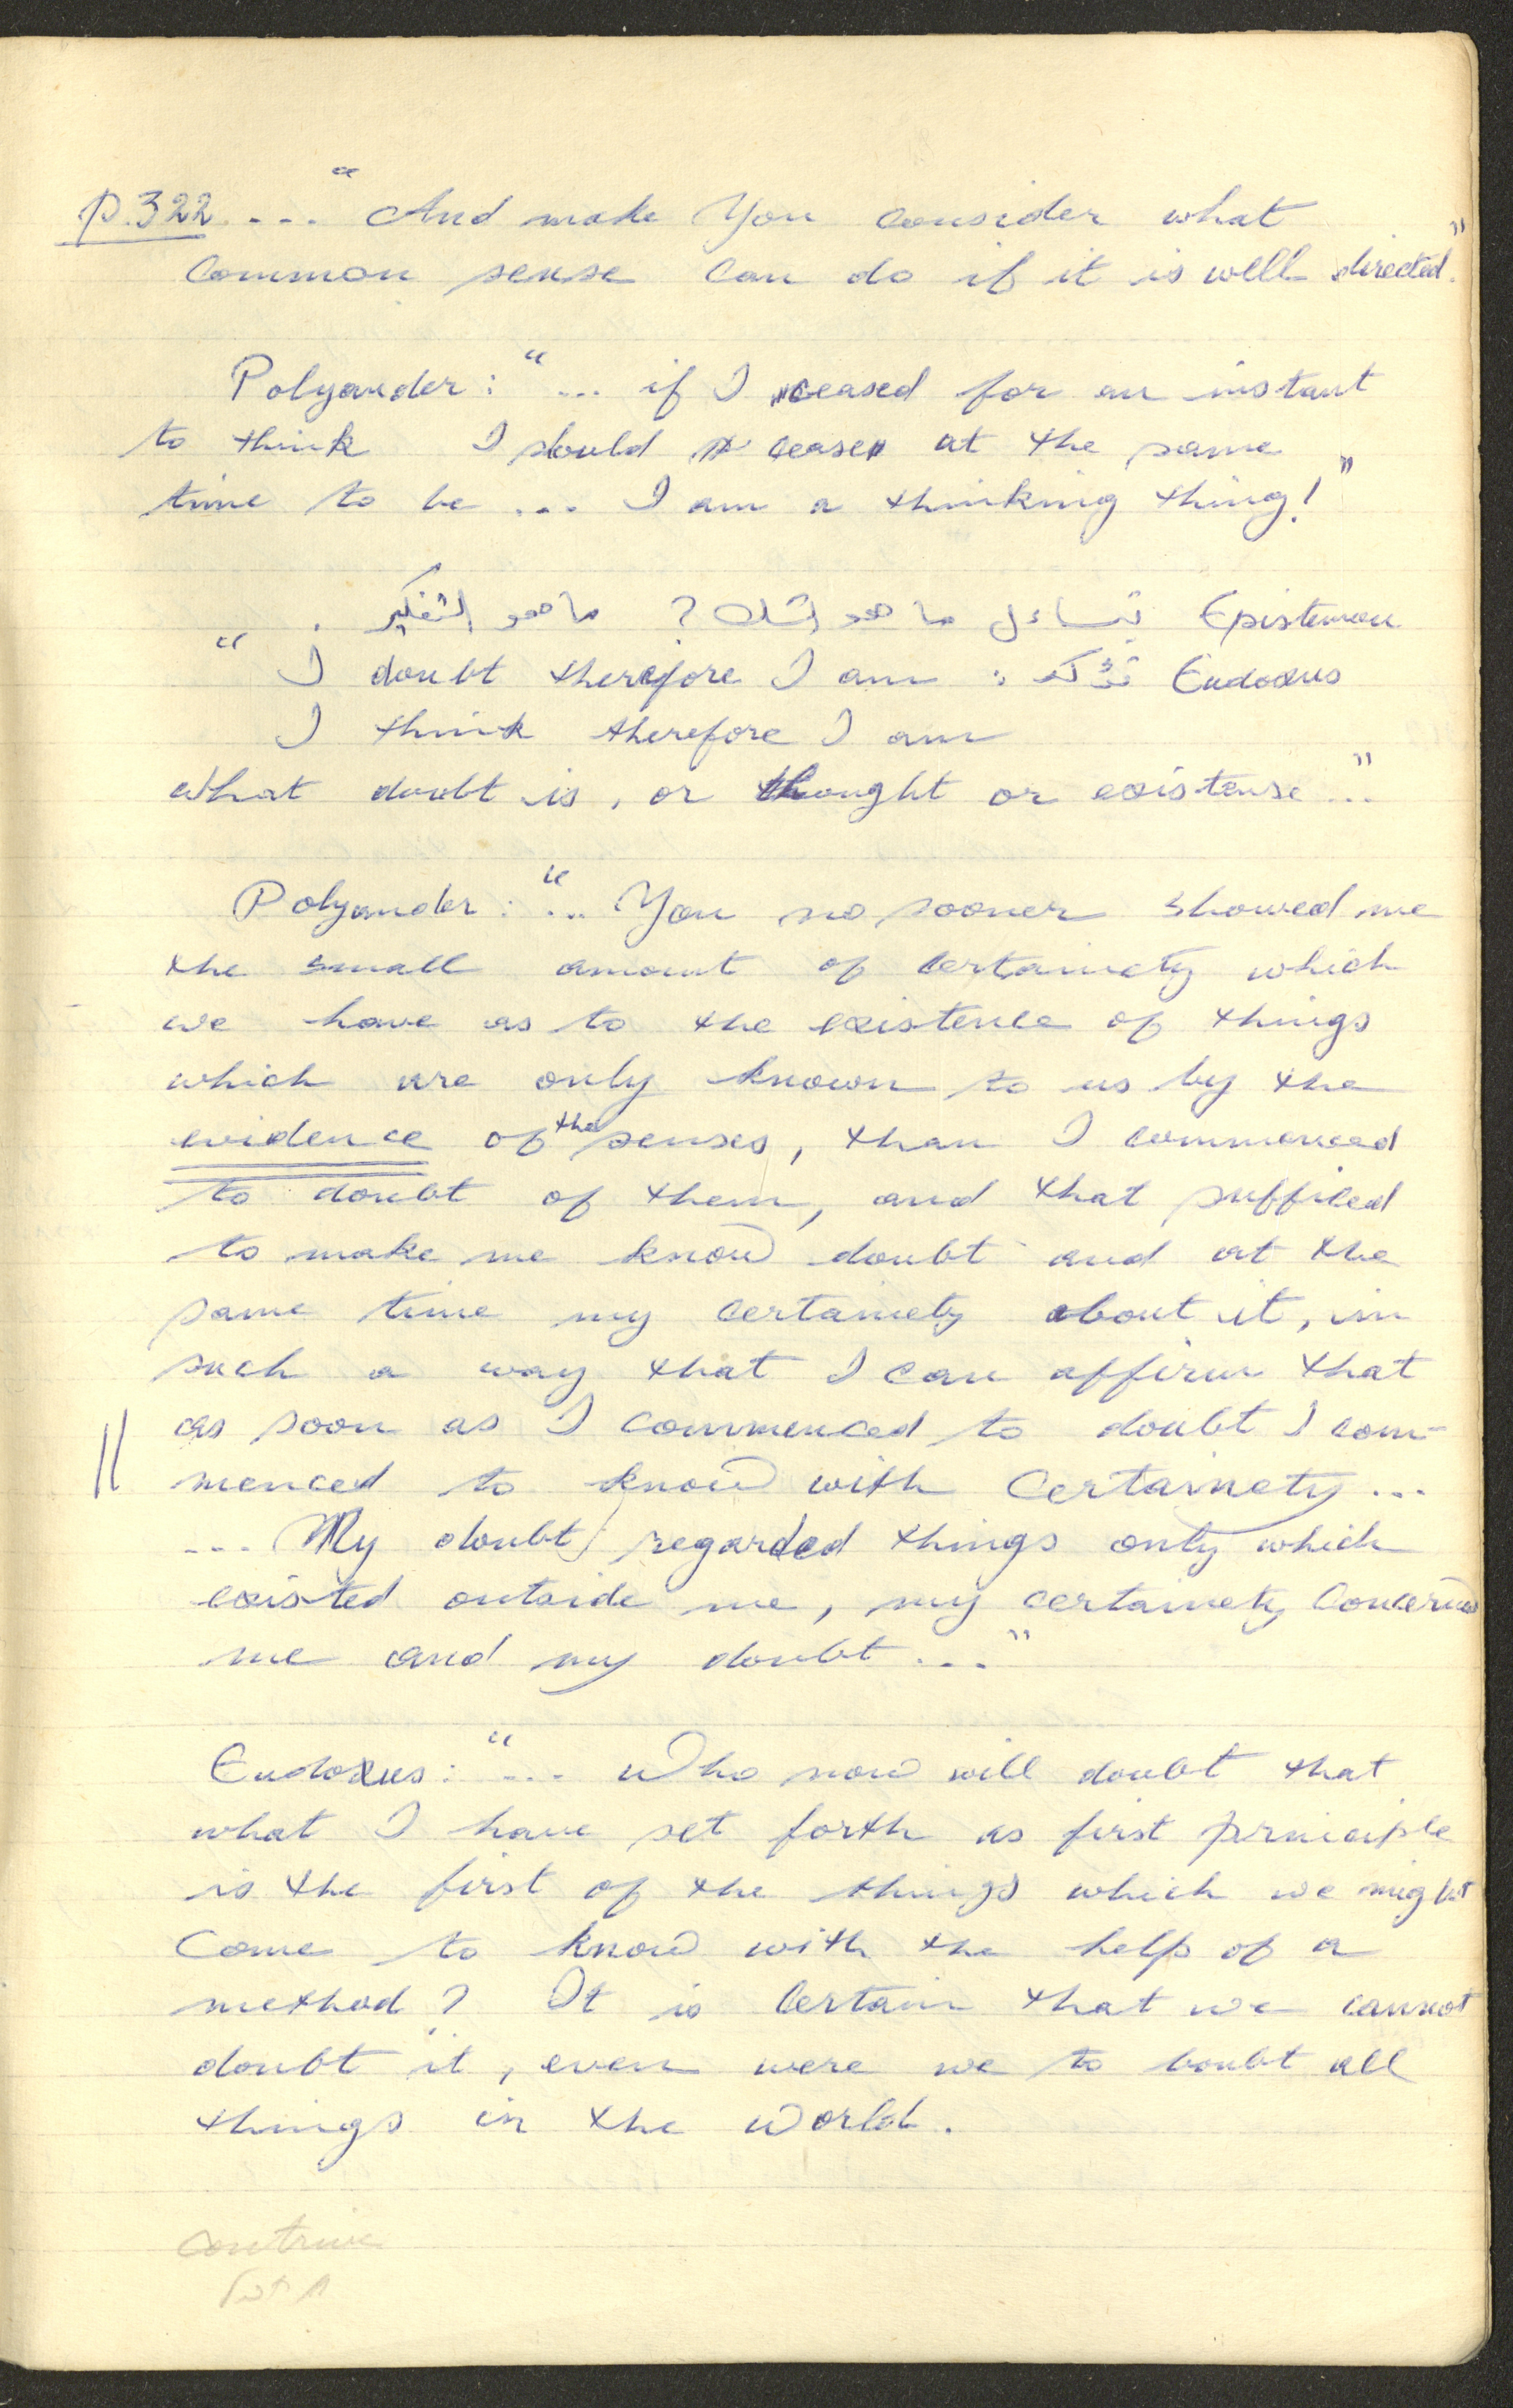 p.322 ... "And make You consider what
common sense can do if it is well directed."
Polyander: "... if I ceased for an instant
to think I should cease at the same
time to be ... I am a thinking thing!"
Epistemon يتساءل ما هو الشك؟ ما هو التفكير .
Eudoxus تذكر : "I doubt therefore I am
I think therefore I am
What doubt is, or thought or existense ..."
Polyander: "... You no sooner showed me
the small amount of certainety which
we have as to the existence of things
which are only known to us by the
evidence of the senses, than I commenced
to doubt of them, and that sufficed
to make me know doubt and at the
same time my certainety about it, in
such a way that I can affirm that
as soon as I commenced to doubt I com-
menced to know with Certainety ...
... My doubt regarded things only which
existed outside me, my certainety concerned
me and my doubt ..."
Eudoxus: "... Who now will doubt that
what I have set forth as first principle
is the first of the things which we might
come to know with the help of a
method? It is certain that we cannot
doubt it, even were we to boubt all
things in the World.